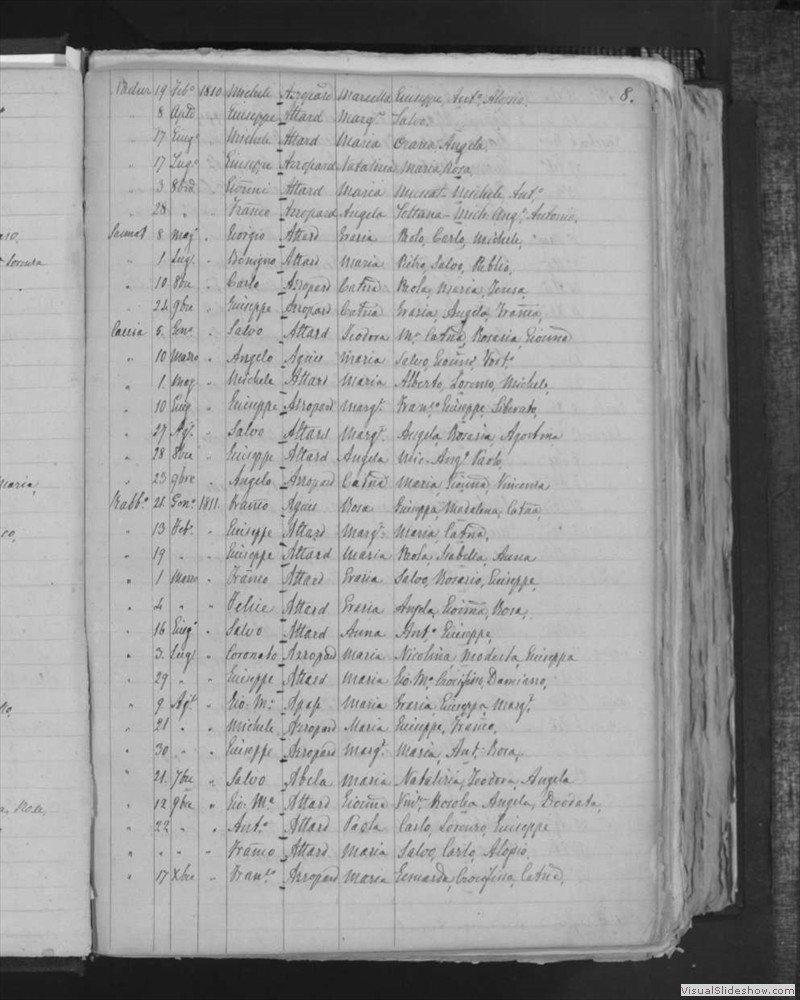 8.
19 Feb.o 1810 Michele Azzopard Marcella Giuseppe, Ant.o Aloisio
" 8 Giuseppe Attard Marg.a Salvo.
" 17 Giug.o " Michele Attard Maria Angela,
" 17 Lug.o " Giuseppe Azzopard Natalina Maria, Rosa,
" 3 8bre " Giovni Attard Maria Muscat Michele, Ant.o
" 28 " " Franco Azzopard Angela Antonio.
8 Mag. " Giorgio Attard Grazia Paolo, Carlo, Michele,
" 1 Lug. " Benigno Attard Maria Pietro, Salvo, Publio,
" 10 8bre " Carlo Azzopard Catna Paola, Maria, Teresa,
" 24 9bre " Giuseppe Azzopard Catna Grazia, Angela, Franca,
Caccia 5. Gen.o " Salvo Attard Teodora M.a Catna, Rosaria, Giovna
" 10 Marzo " Angelo Agius Maria Salvo,
" 1. Mag. " Michele Attard Maria Alberto, Lorenzo, Michele,
" 10 Giug. " Giuseppe Azzopard Marg.t Fran.co Giuseppe, Liberato,
" 27 Ag.t " Salvo Attard Marg.t Angela, Rosaria, Agostina
" 28 8bre " Giuseppe Attard Angela Mic. Ang.o Paolo,
" 23 9bre " Angelo Azzopard Catna Maria, Giovna, Vincenza
21. Gen.o 1811 Franco Agius Rosa Giuseppa, Madalena, Catna,
" 13 Feb.o " Giuseppe Attard Marg.t Maria, Catna,
" 19 " " Giuseppe Attard Maria Paola, Isabella, Anna
" 1 Marzo " Franco Attard Grazia Salvo, Rosario, Giuseppe,
" 4 " " Felice Attard Grazia Angela, Giovna, Rosa,
" 16 Giug.o " Salvo Attard Anna Ant.o Giuseppe,
" 3. Lug. " Coronato Azzopard Maria Nicolina, Modesta, Giuseppa
" 29 " " Giuseppe Attard Maria Gio: M.a Crocifisso, Damiano,
" 9 Ag.t " Gio: M.a Apap Maria Grazia, Giuseppa, Marg.t
" 21 " " Michele Azzopard Maria Giuseppe, Franco,
" 30 " " Giuseppe Azzopard Marg.t Maria, Ant.a Rosa,
" 21. 7bre " Salvo Abela Maria Natalizia, Teodora, Angela
" 12 9bre " Gio: M.a Attard Giovna Rosolea Angela, Deodata,
" 22 " " Ant.o Attard Paola Carlo, Lorenzo, Giuseppe
" " " " Franco Attard Maria Salvo, Carlo, Aloisio.
" 17 Xbre " Fran.co Azzopard Maria Crocifissa, Catna,
VisualSlideshow.com